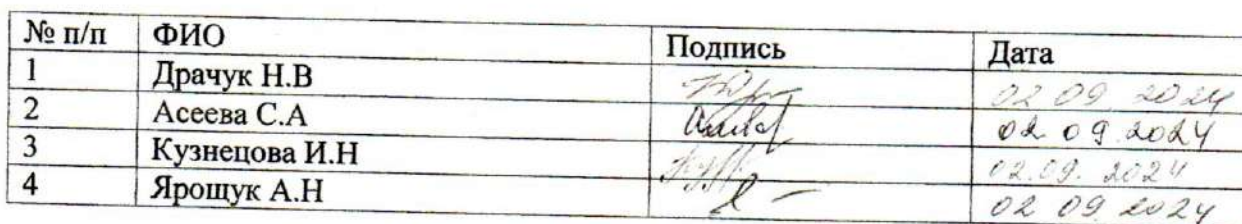 № п/п ФИО Подпись Дата
1 Драчук Н.В 02 09 2024
2 Асеева С.А 02 09.2024
3 Кузнецова И.Н 02.09. 2024
4 Ярощук А.Н 02 09 2024